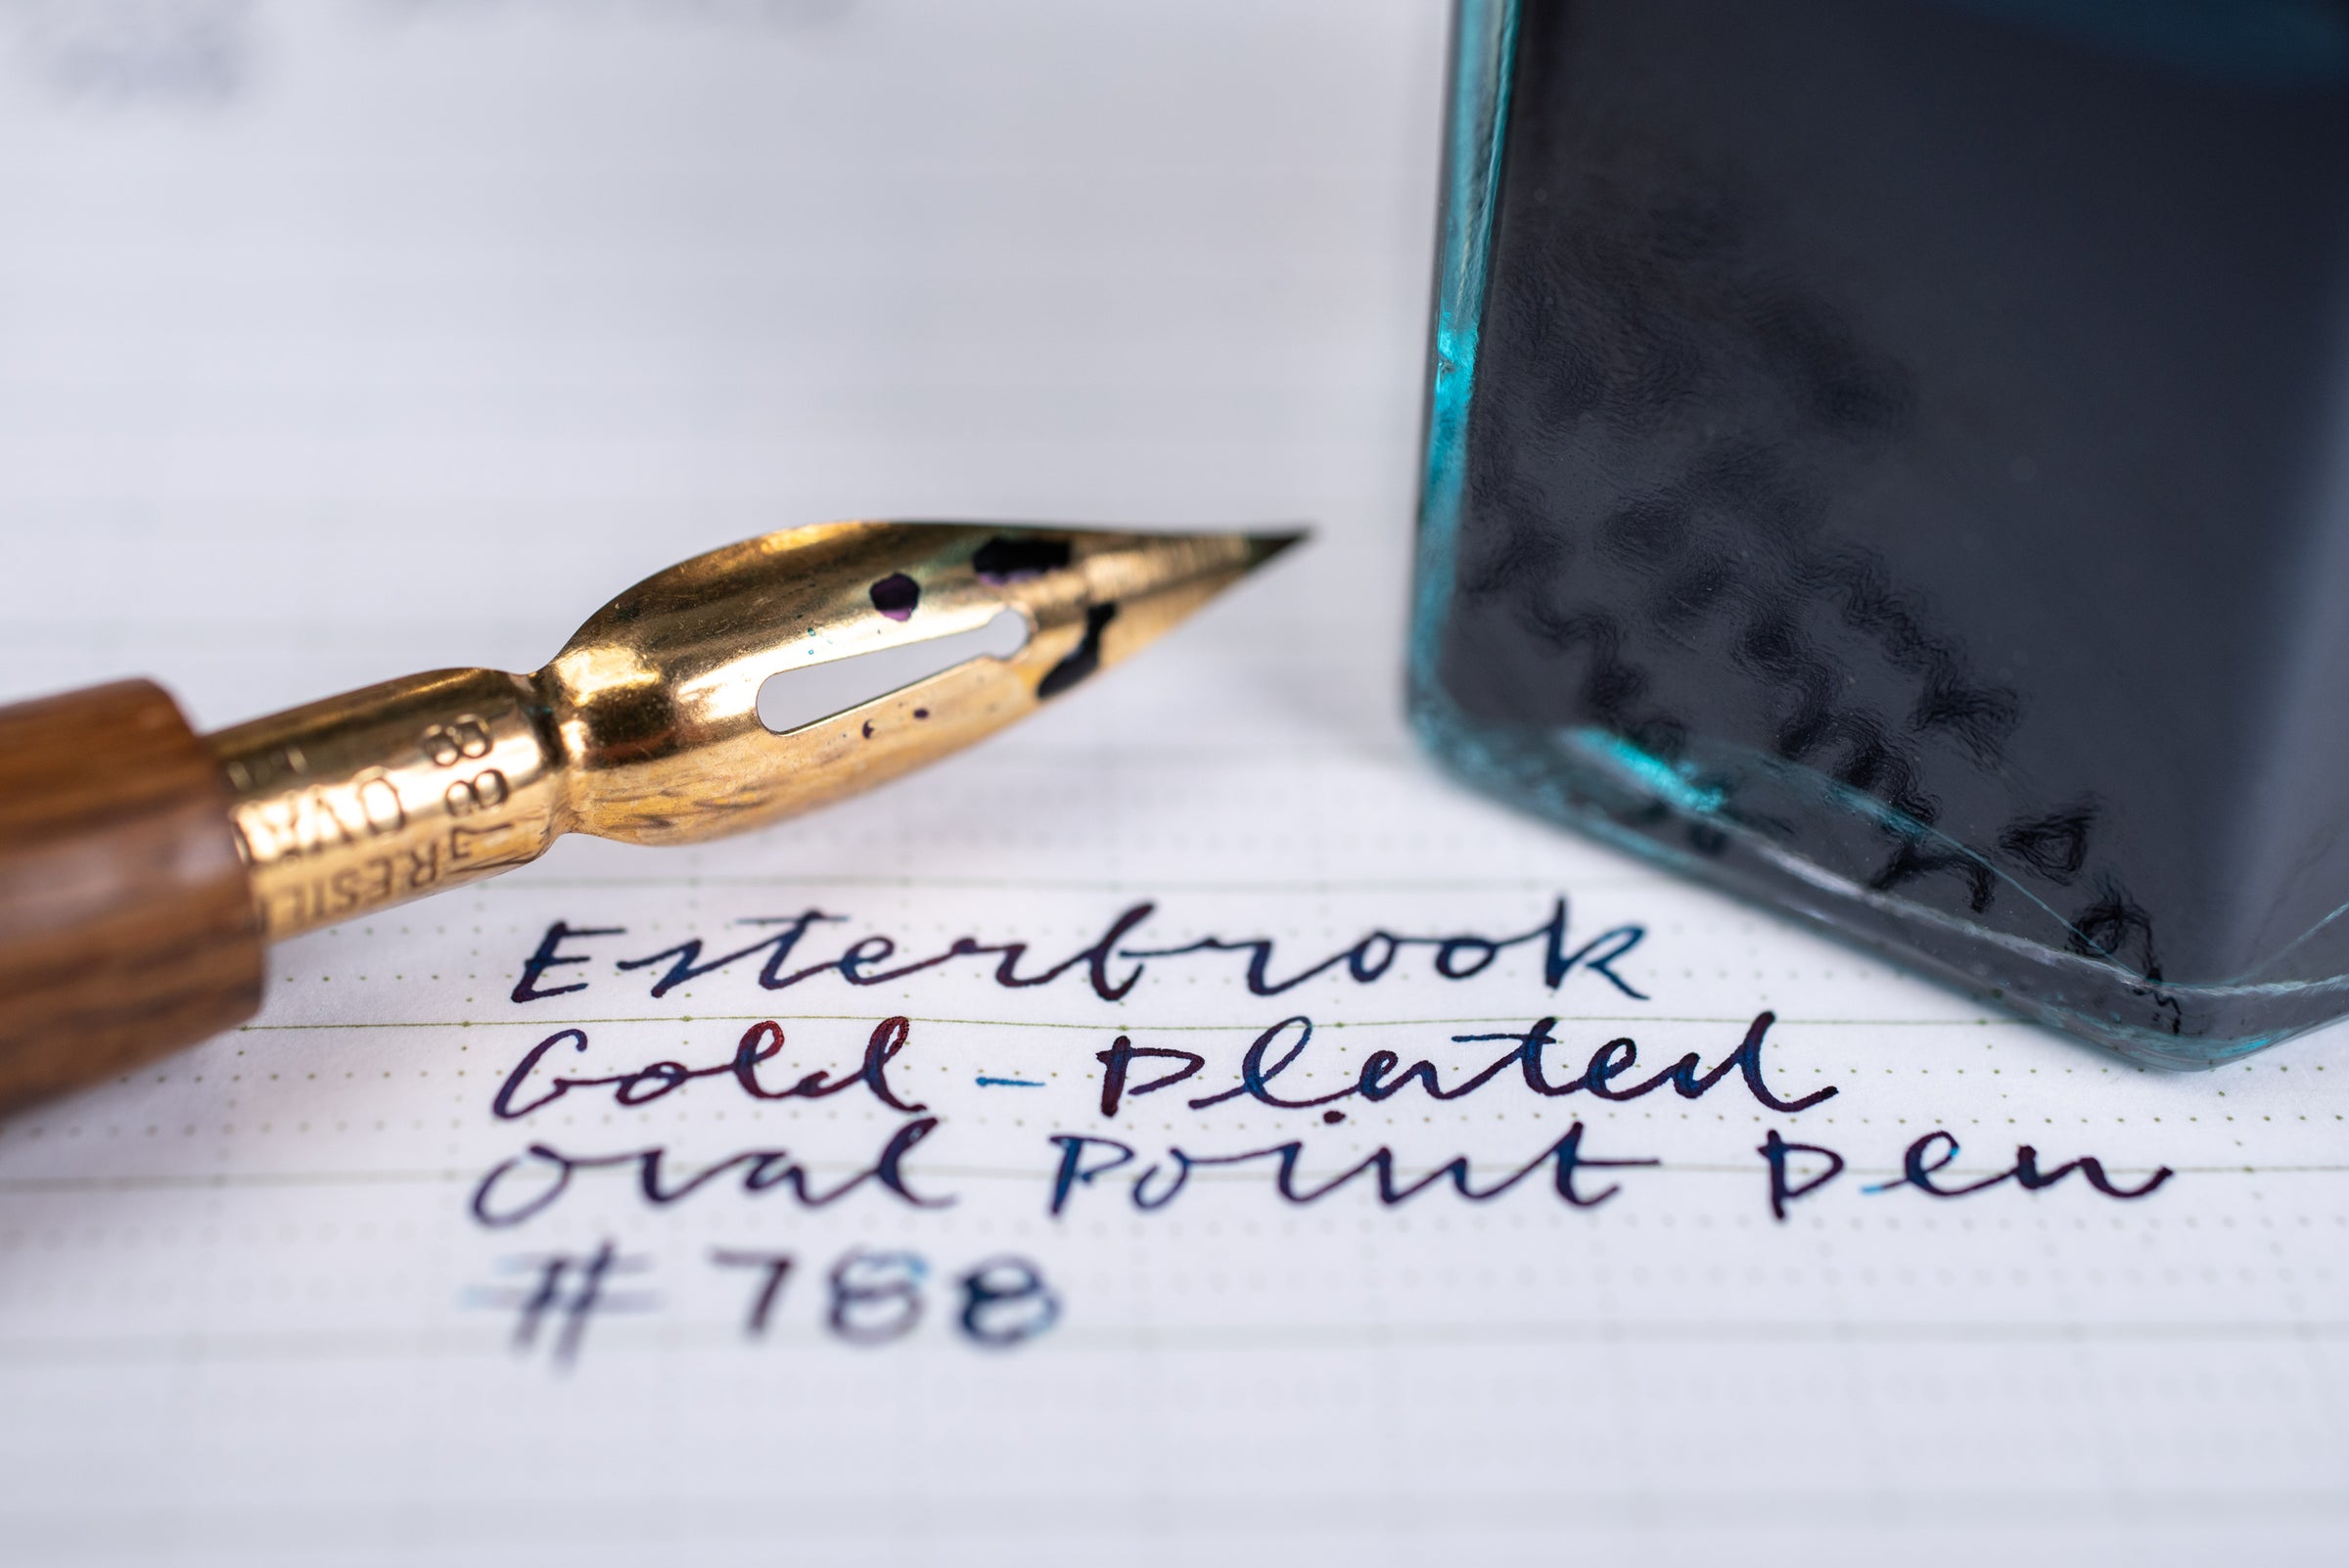 788
OVA
ESTER
Esterbrook
Gold-Plated
Oval Point Pen
#788